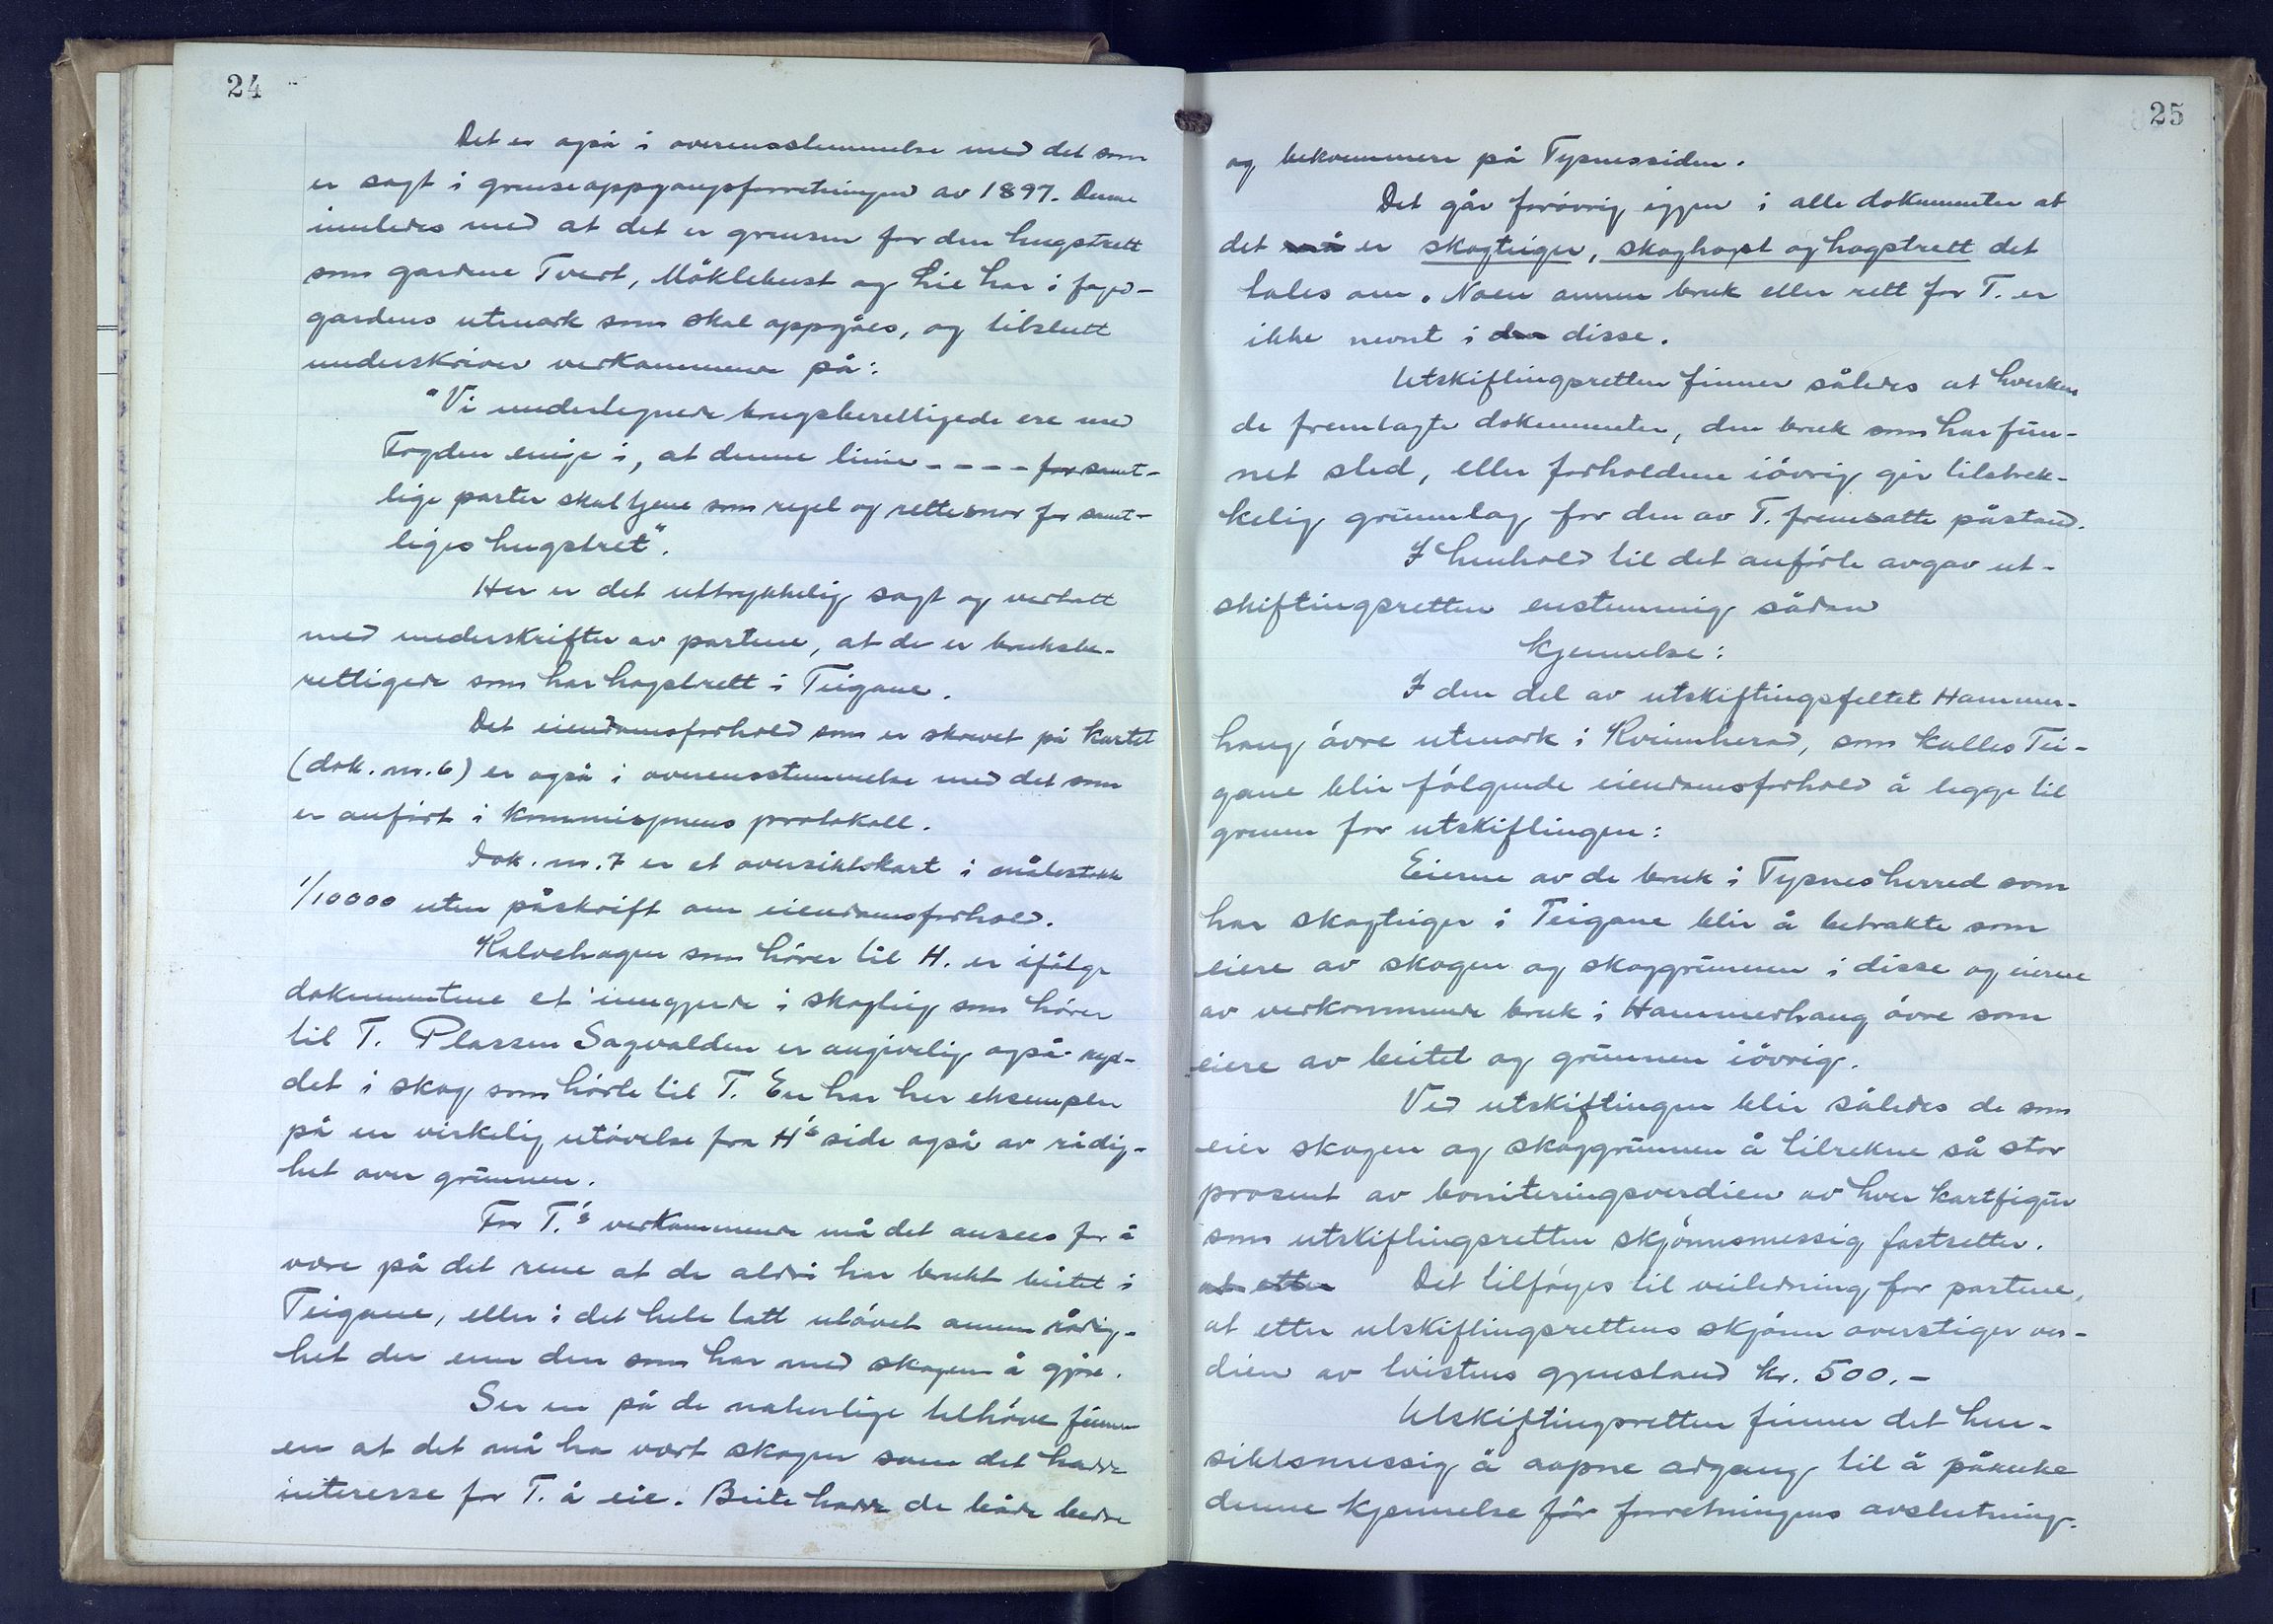 24
Det er også i overensstemmelse med det som
er sagt i grenseoppgangsforretningen av 1897. Denne
innledes med at det er grensen for den hugstrett
som gardene Tvert, Möklebust og Lie har i foged-
gardens utmark som skal oppgåes, og tilslutt
underskriver vedkommende på:
"Vi undertegnede brugsberettigede ere med
Fogden enige i, at denne linie - - - - for samt-
lige parter skal tjene som regel og rettesnor for samt-
liges hugstret".
Her er det uttrykkelig sagt og vedtatt
med underskrifter av partene, at de er bruksbe-
rettigede som har hogstrett i Teigane.
Det eiendomsforhold som er skrevet på kartet
(dok. nr. 6) er også i overensstemmelse med det som
er anført i kommisjonens protokoll.
Dok. nr. 7 er et oversiktskart i målestokk
1/10000 uten påskrift om eiendomsforhold.
Kalvehagen som hörer til H. er ifölge
dokumentene et inngjerde i skogteig som hörer
til T. Plassen Sagvolden er angivelig også ryd-
det i skog som hörte til T. En har her eksempler
på en virkelig utövelse fra H's side også av rådig-
het over grunnen.
For T.'s vedkommende må det ansees for å
være på det rene at de aldri har brukt beitet i
Teigane, eller i det hele tatt utövet annen rådig-
het der enn den som har med skogen å gjöre.
Ser en på de naturlige tilhöve finner
en at det må ha vært skogen som det hadde
interesse for T. å eie. Beite hadde de både bedre
25
og bekvemmere på Tysnessiden.
Det går forövrig igjen i alle dokumenter at
det må er skogteiger, skoghogst og hogstrett det
tales om. Noen annen bruk eller rett for T. er
ikke nevnt i den disse.
Utskiftingsretten finner således at hverken
de fremlagte dokumenter, den bruk som har fun-
net sted, eller forholdene iövrig gir tilstrek-
kelig grunnlag for den av T. fremsatte påstand.
I henhold til det anförte avgav ut-
skiftingsretten enstemmig sådan
Kjennelse:
I den del av utskiftingsfeltet Hammer-
haug övre utmark i Kvinnherad, som kalles Tei-
gane blir fölgende eiendomsforhold å legge til
grunn for utskiftingen:
Eierne av de bruk i Tysnes herred som
har skogteiger i Teigane blir å betrakte som
eiere av skogen og skoggrunnen i disse og eierne
av vedkommende bruk i Hammerhaug övre som
eiere av beitet og grunnen iövrig.
Ved utskiftingen blir således de som
eier skogen og skoggrunnen å tilrekne så stor
prosent av boniteringsverdien av hver kartfigur
som utskiftingsretten skjönnsmessig fastsetter.
at etter Det tilföyes til veiledning for partene,
at etter utskiftingsrettens skjönn overstiger ver-
dien av tvistens gjenstand kr. 500.-
Utskiftingsretten finner det hen-
siktsmessig å åpne adgang til å påanke
denne kjennelse för forretningens avslutning.